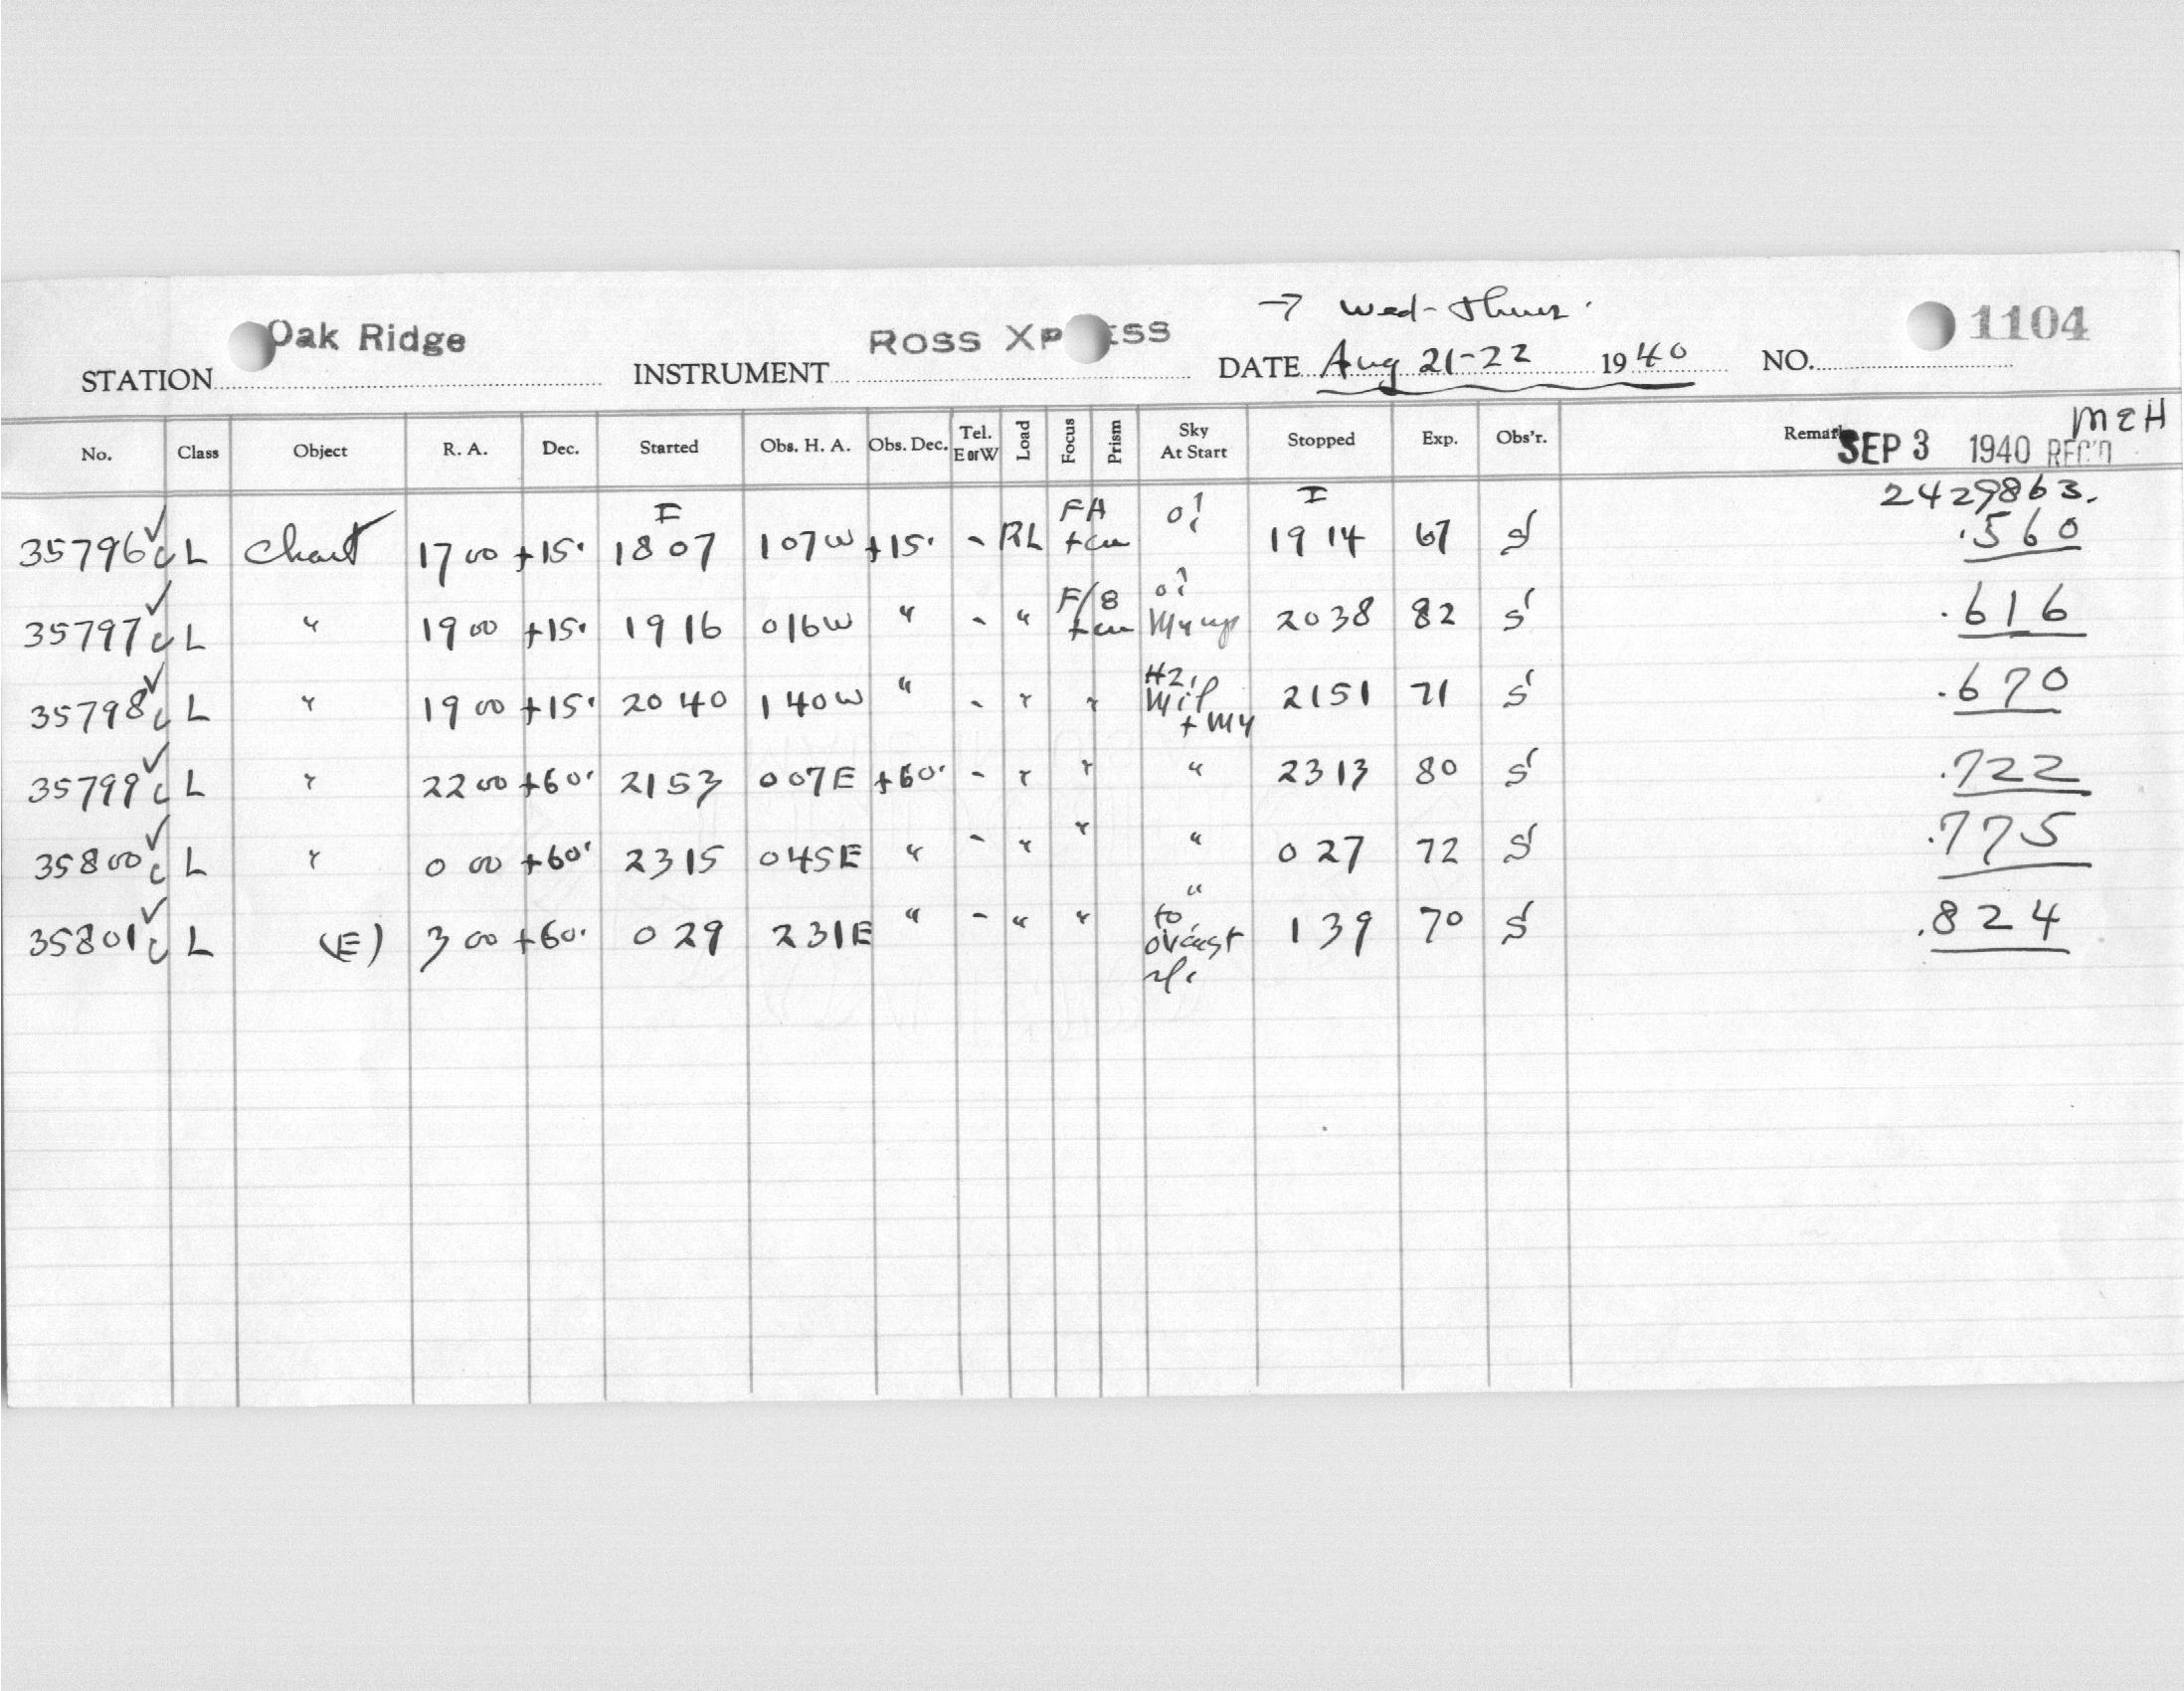 → Wed - Thurs.
STATION Oak Ridge INSTRUMENT Ross XPRESS DATE Aug 21-22 1940 NO. 1104
MEH
No. Class Object R. A. Dec. Started Obs. H. A. Obs. Dec. Tel. E or W Load Focus Prism Sky At Start Stopped Exp. Obs'r. Remarks
SEP 3 1940 REC'D
2429863.
35796 ✓ c L Chart 17 00 +15° I 18 07 1 07 W +15° - RL FA o? I 19 14 67 S .560
35797 ✓ c L " 19 00 +15° 19 16 0 16 W " - " F/8 o? 20 38 82 S .616
35798 ✓ c L " 19 00 +15° 20 40 1 40 W " - " " H2, 21 51 71 S .670
35799 ✓ c L " 22 00 +60° 21 53 0 07 E +60° - " " " 23 13 80 S .722
35800 ✓ c L " 0 00 +60° 23 15 0 45 E " - " " " 0 27 72 S .775
35801 ✓ c L (E) 3 00 +60° 0 29 2 31 E " - " " " to ov'cast 1 39 70 S .824